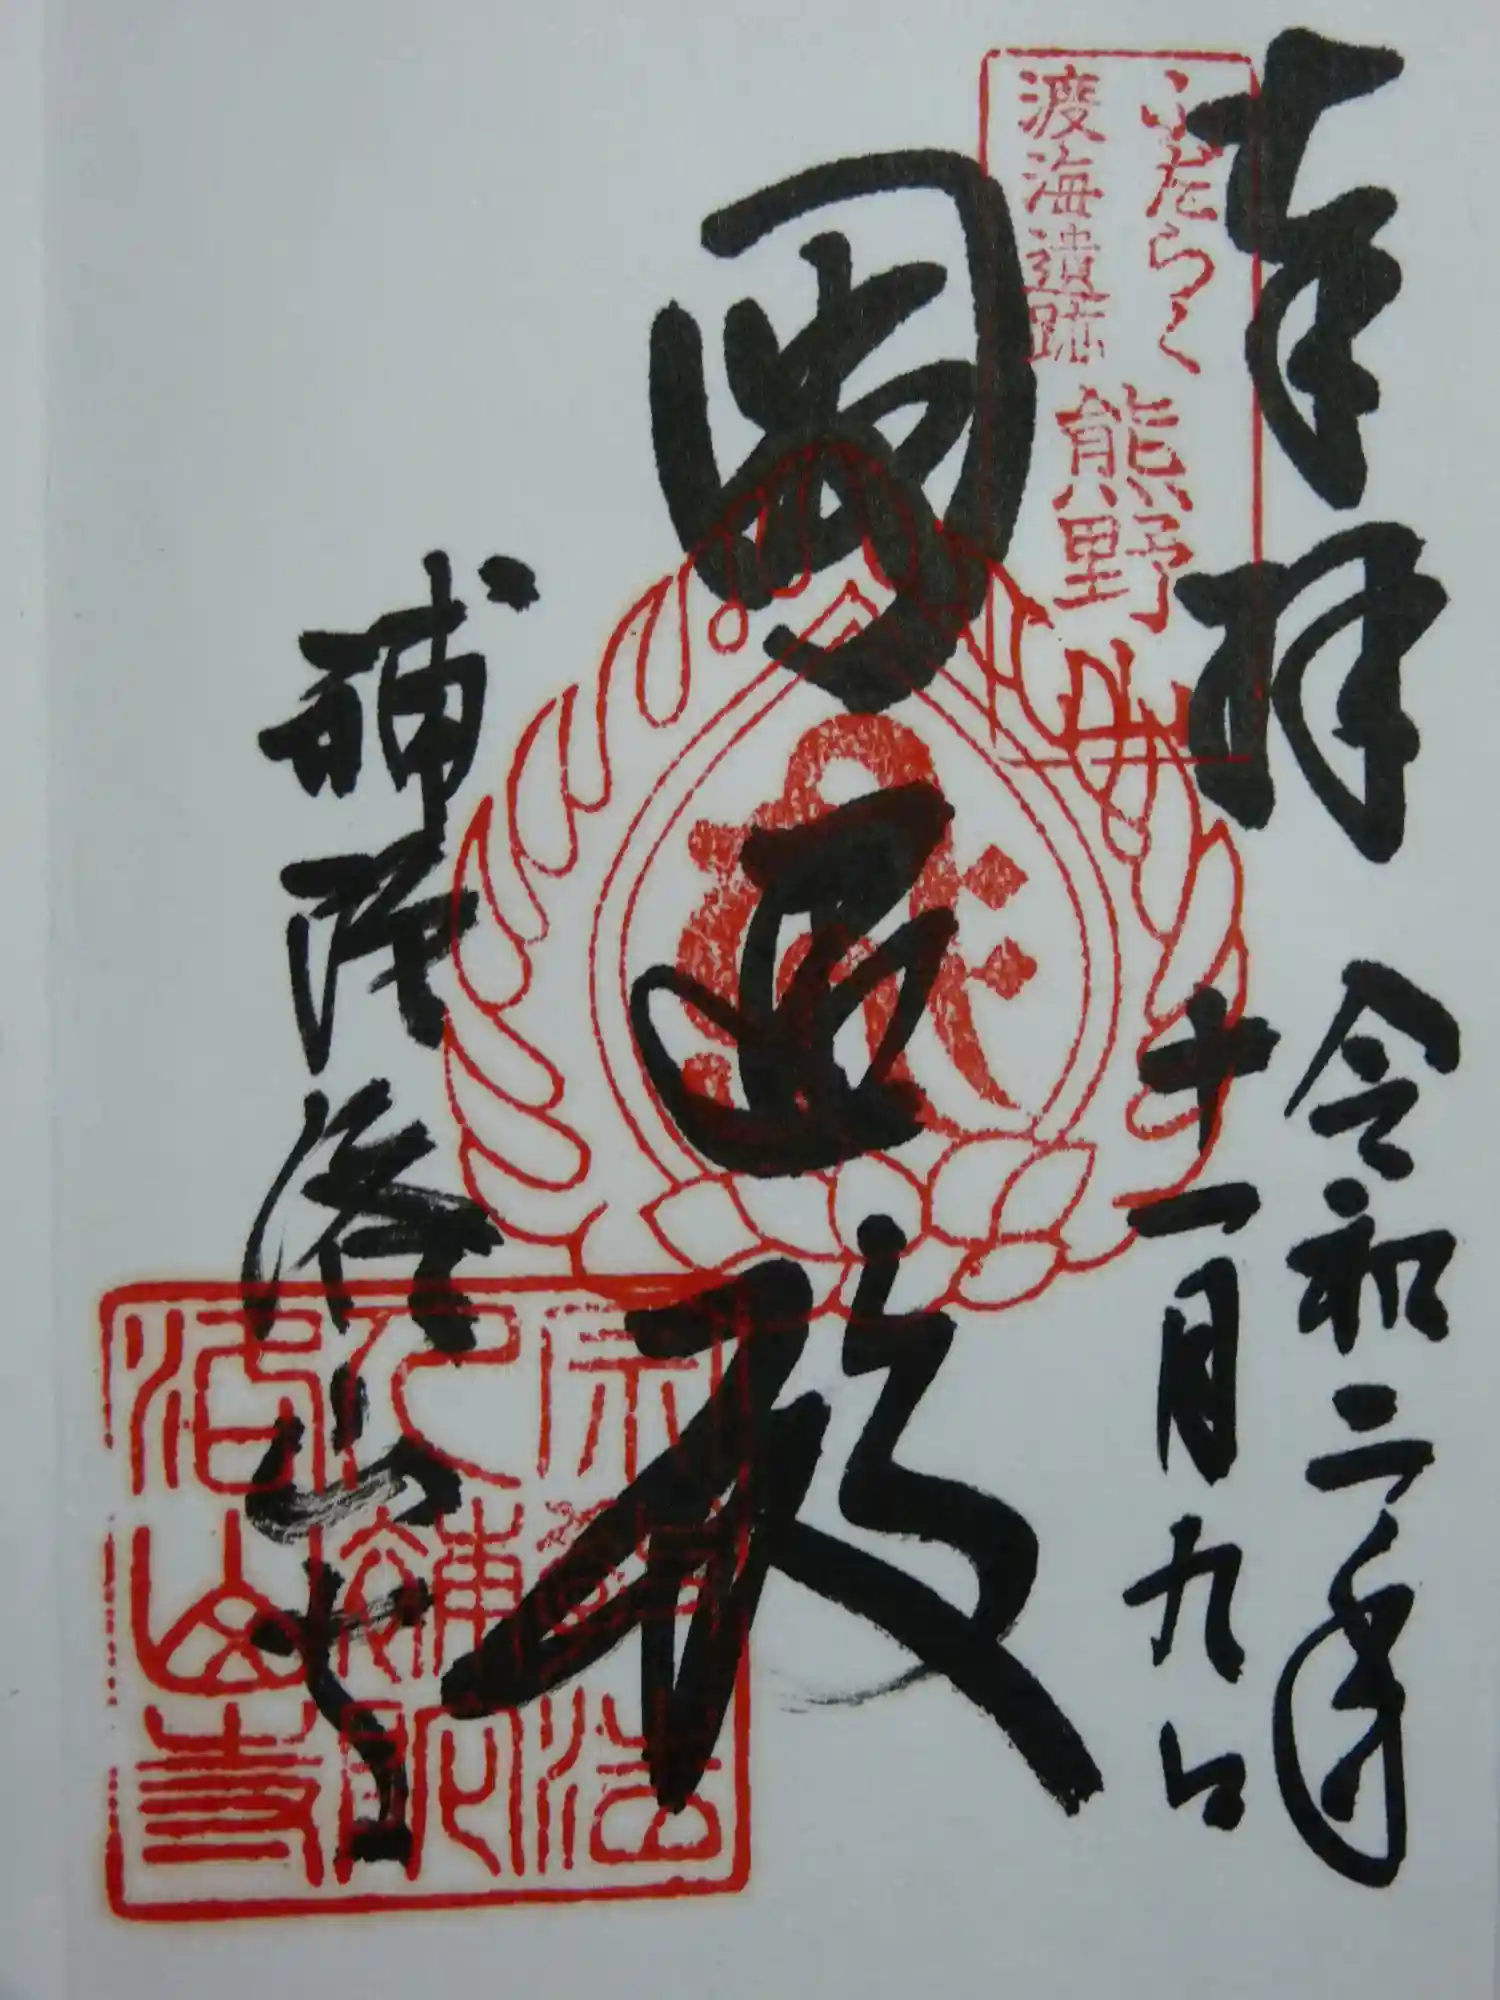 奉拝
令和二年
十一月九日
ふだらく
渡海遺跡
熊野
圓通殿
補陀洛山寺